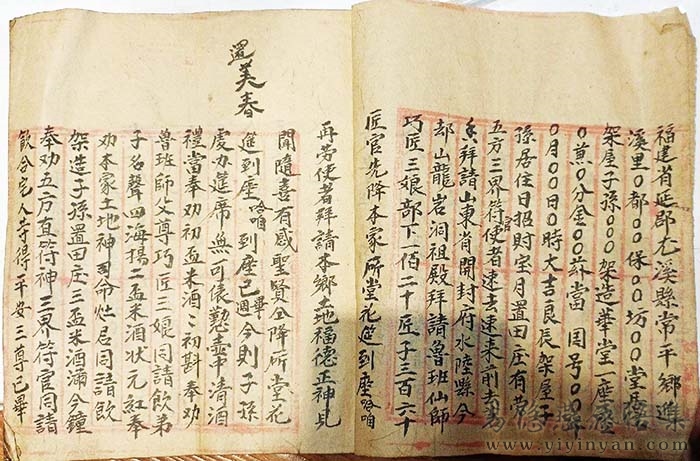 福建省延郡尤溪縣常平鄉進
溪里〇都〇〇保〇〇坊〇〇堂居
架屋子孫〇〇〇架造華堂一座
〇兼〇〇分金〇〇茲當 囯号〇〇
〇月〇〇日〇時大吉良辰架屋子
孫居住日招財宝月置田庄有劳
五方三界符官使者速去速來前去
拜請山東省開封府水陸縣今
却山龍岩洞祖殿拜請魯班仙師
巧匠三娘部下一佰二十匠子三百六十
匠官先降本家所堂花筵到座
再劳使者拜請本鄉土地福德正神見
還美春
開隨喜有感聖賢仝降所堂花
筵到座 到座已畢週今則子孫
虔办筵席無可俵懃壶中清酒
禮當奉劝初盃米酒初斟奉劝
魯班師父尊巧匠三娘同請飲弟
子名聲四海揚二盃米酒状元紅奉
劝本家土地神司命灶君同請飲
架造子孫置田庄三盃米酒滿今鐘
奉劝五方直符神三界符官同請
飲合宅人丁得平安三尊已畢
易德轩藏陰進
www.yiyinyan.com